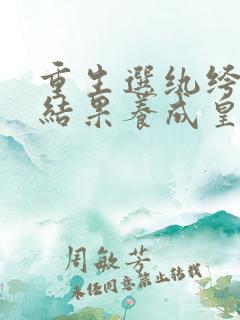 重生選紈绔
結果養成皇
周敏芳
未经同意禁止转载